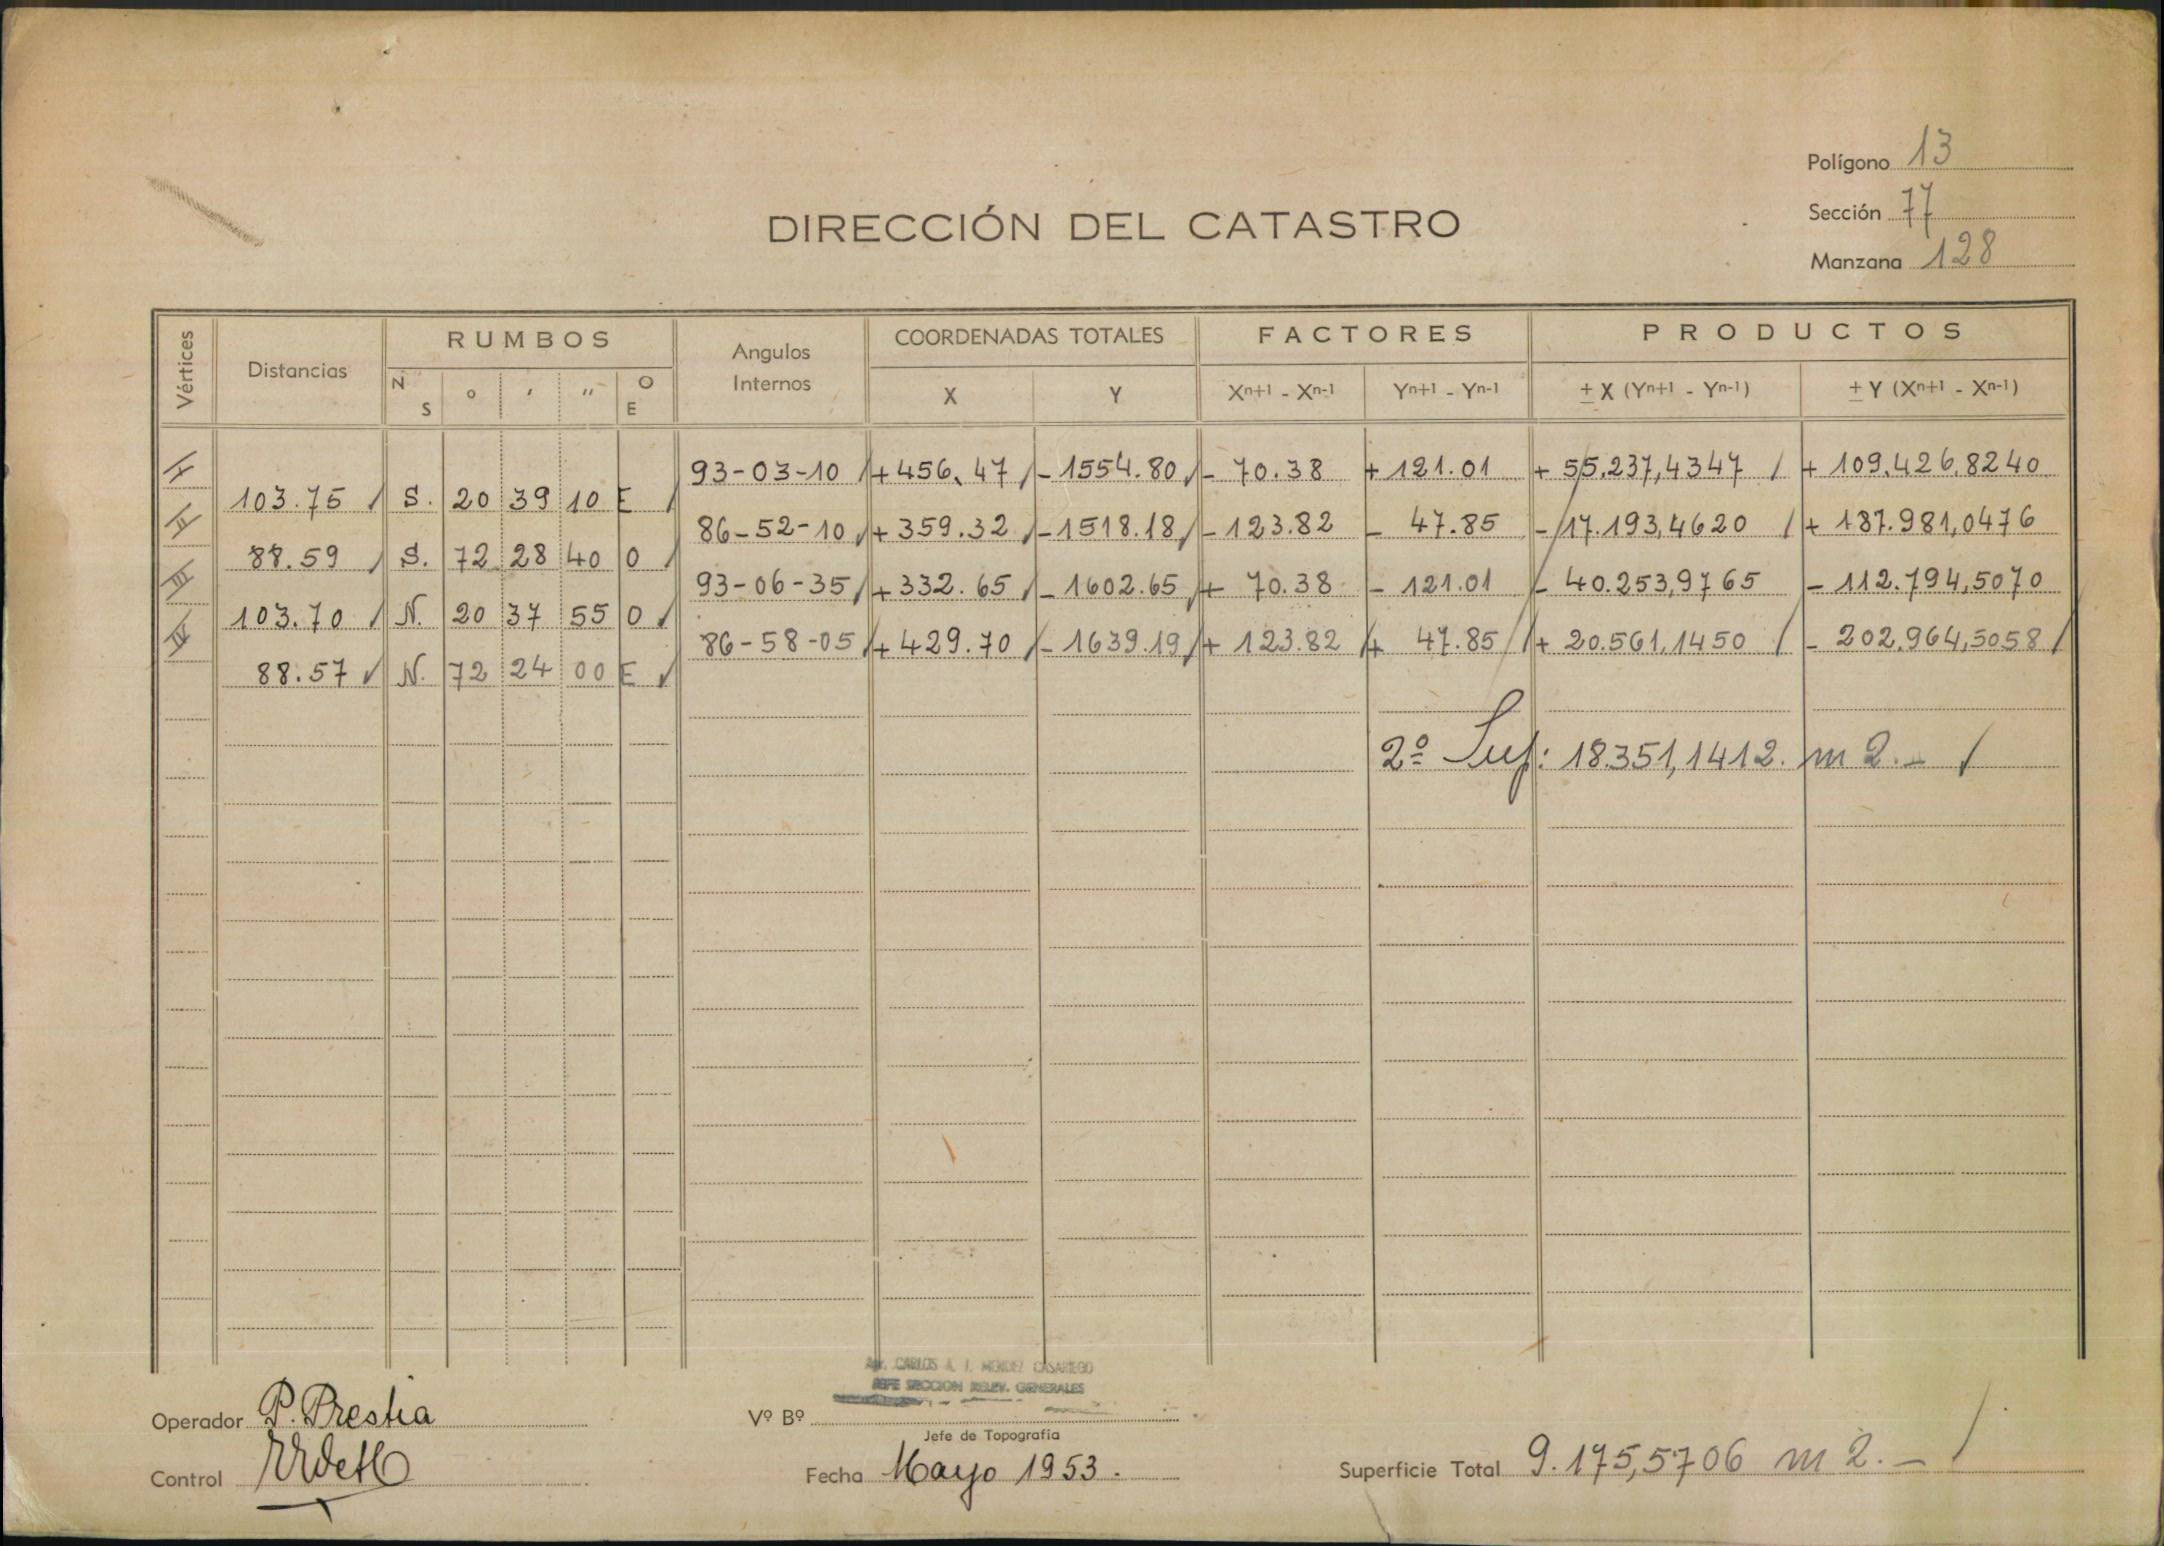 Polígono 13
Sección 77
DIRECCIÓN DEL CATASTRO
Manzana 128
Vértices Distancias RUMBOS Angulos Internos COORDENADAS TOTALES FACTORES PRODUCTOS
N S ° ' " O E X Y Xⁿ⁺¹ - Xⁿ⁻¹ Yⁿ⁺¹ - Yⁿ⁻¹ ± X (Yⁿ⁺¹ - Yⁿ⁻¹) ± Y (Xⁿ⁺¹ - Xⁿ⁻¹)
I 93-03-10 +456.47 -1554.80 - 70.38 + 121.01 + 55.237,4347 + 109.426,8240
103.75 S. 20 39 10 E
II 86-52-10 +359.32 -1518.18 -123.82 - 47.85 -17.193,4620 + 187.981,0476
88.59 S. 72 28 40 O
III 93-06-35 +332.65 -1602.65 + 70.38 - 121.01 - 40.253,9765 - 112.794,5070
103.70 N. 20 37 55 O
IV 86-58-05 +429.70 -1639.19 + 123.82 + 47.85 + 20.561,1450 - 202.964,5058
88.57 N. 72 24 00 E
2º Sup: 18.351,1412. m2.-
CARLOS A. J. MENDEZ CASARIEGO
JEFE SECCION RELEV. GENERALES
Operador P. Prestia
Vº Bº
Jefe de Topografía
Control
Fecha Mayo 1953.
Superficie Total 9.175,5706 m2.-